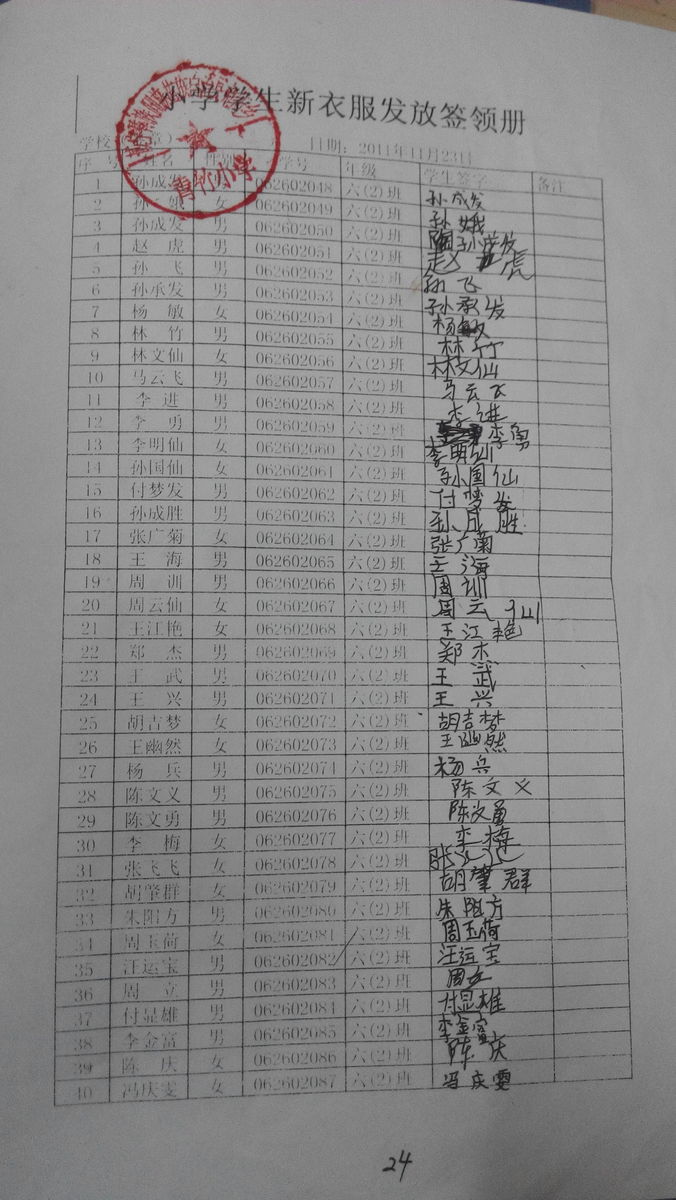 小学学生新衣服发放签领册
学校(盖章) 日期：2011年11月23日
青竹小学
序号 姓名 性别 学号 年级 学生签字 备注
1 孙成发 062602048 六(2)班 孙成发
2 孙娥 女 062602049 六(2)班 孙娥
3 孙成发 男 062602050 六(2)班 孙成发
4 赵虎 男 062602051 六(2)班 赵虎
5 孙飞 男 062602052 六(2)班 孙飞
6 孙承发 男 062602053 六(2)班 孙承发
7 杨敏 女 062602054 六(2)班 杨敏
8 林竹 男 062602055 六(2)班 林竹
9 林文仙 女 062602056 六(2)班 林文仙
10 马云飞 男 062602057 六(2)班 马云飞
11 李进 男 062602058 六(2)班 李进
12 李勇 男 062602059 六(2)班 李勇
13 李明仙 女 062602060 六(2)班 李明仙
14 孙国仙 女 062602061 六(2)班 孙国仙
15 付梦发 男 062602062 六(2)班 付梦发
16 孙成胜 男 062602063 六(2)班 孙成胜
17 张广菊 女 062602064 六(2)班 张广菊
18 王海 男 062602065 六(2)班 王海
19 周训 男 062602066 六(2)班 周训
20 周云仙 女 062602067 六(2)班 周云仙
21 王江艳 女 062602068 六(2)班 王江艳
22 郑杰 男 062602069 六(2)班 郑杰
23 王武 男 062602070 六(2)班 王武
24 王兴 男 062602071 六(2)班 王兴
25 胡吉梦 女 062602072 六(2)班 胡吉梦
26 王幽然 女 062602073 六(2)班 王幽然
27 杨兵 男 062602074 六(2)班 杨兵
28 陈文义 男 062602075 六(2)班 陈文义
29 陈文勇 男 062602076 六(2)班 陈文勇
30 李梅 女 062602077 六(2)班 李梅
31 张飞飞 女 062602078 六(2)班 张飞飞
32 胡肇群 女 062602079 六(2)班 胡肇群
33 朱阳方 男 062602080 六(2)班 朱阳方
34 周玉荷 女 062602081 六(2)班 周玉荷
35 汪运宝 男 062602082 六(2)班 汪运宝
36 周立 男 062602083 六(2)班 周立
37 付显雄 男 062602084 六(2)班 付显雄
38 李金富 男 062602085 六(2)班 李金富
39 陈庆 女 062602086 六(2)班 陈庆
40 冯庆雯 女 062602087 六(2)班 冯庆雯
24